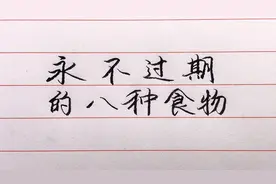 永不过期
的八种食物